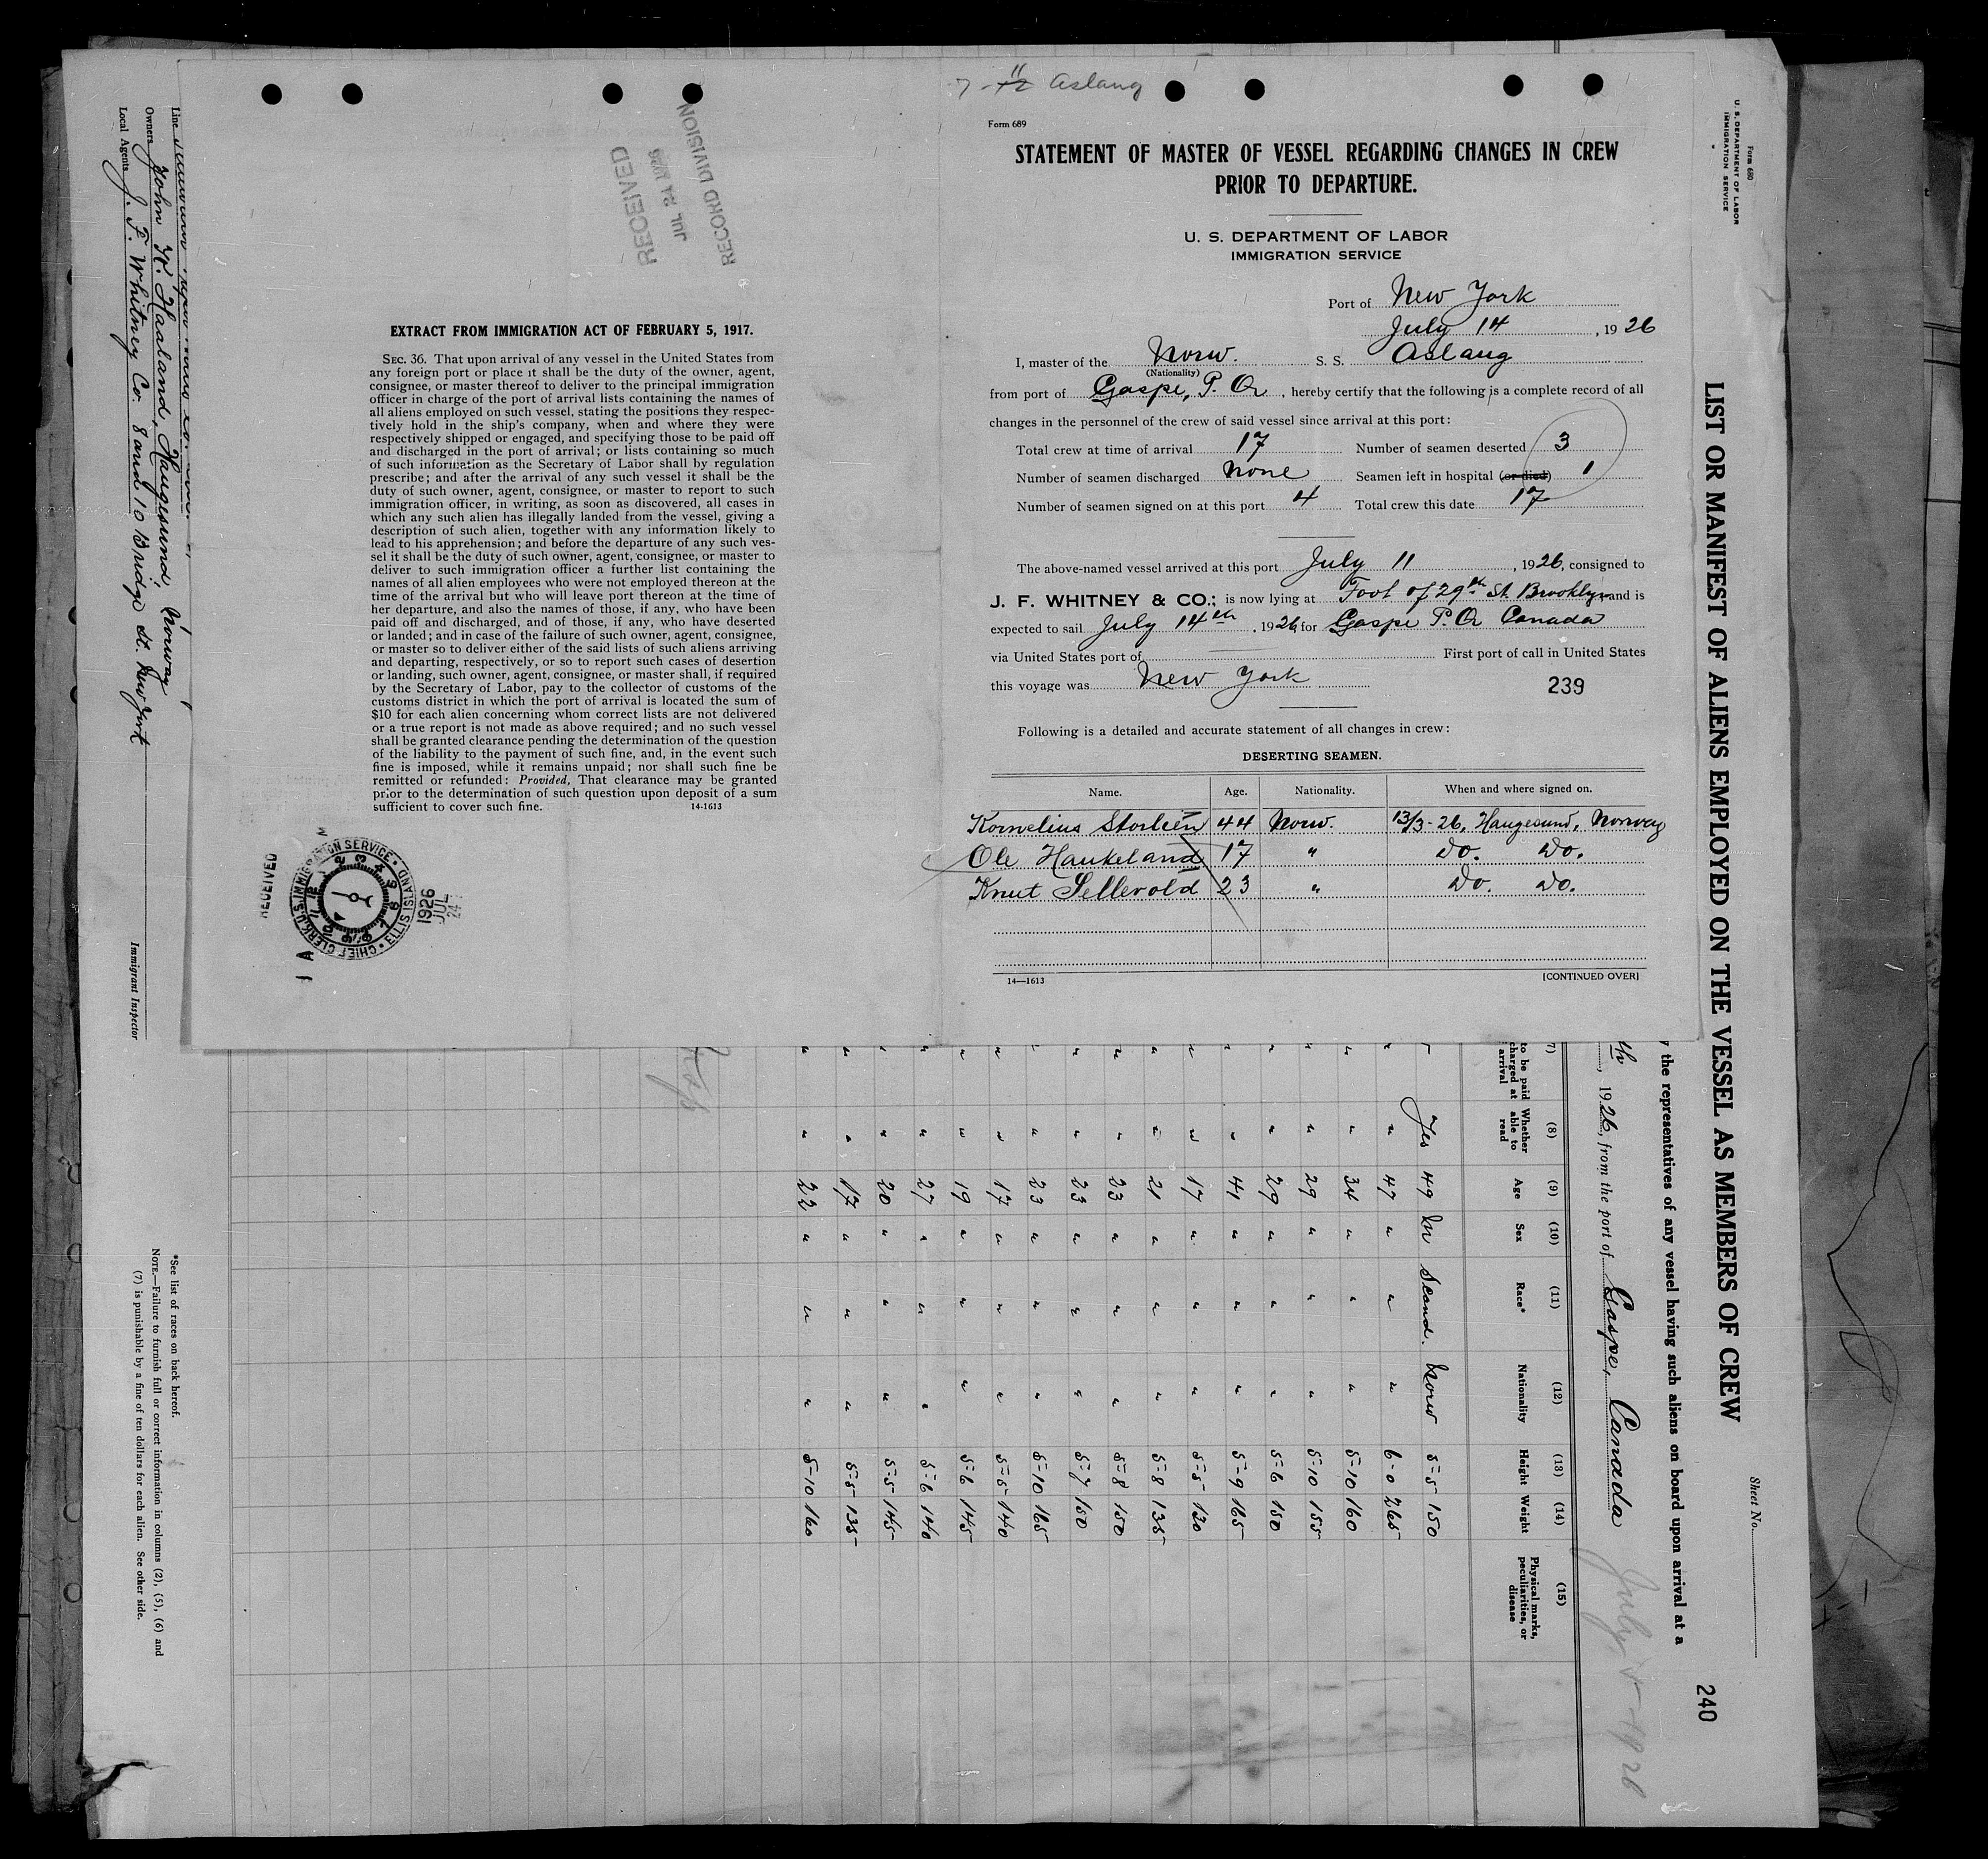 7-11 Aslaug
Form 689
STATEMENT OF MASTER OF VESSEL REGARDING CHANGES IN CREW
PRIOR TO DEPARTURE.
U. S. DEPARTMENT OF LABOR
IMMIGRATION SERVICE
Port of New York
July 14, 1926
I, master of the Norw. S. S. Aslaug
(Nationality)
from port of Gaspe, P. Q, hereby certify that the following is a complete record of all
changes in the personnel of the crew of said vessel since arrival at this port:
Total crew at time of arrival 17 Number of seamen deserted 3
Number of seamen discharged None Seamen left in hospital (or died) 1
Number of seamen signed on at this port 4 Total crew this date 17
The above-named vessel arrived at this port July 11, 1926, consigned to
J. F. WHITNEY & CO.; is now lying at Foot of 29th St. Brooklyn and is
expected to sail July 14th, 1926 for Gaspe P. Q. Canada
via United States port of First port of call in United States
this voyage was New York
239
Following is a detailed and accurate statement of all changes in crew:
DESERTING SEAMEN.
Name. Age. Nationality. When and where signed on.
Kornelius Storlien 44 Norw. 13/3-26, Haugesund, Norway
Ole Haukeland 17 " Do. Do.
Knut Sellevold 23 " Do. Do.
14—1613 [CONTINUED OVER]
RECEIVED
JUL 24 1926
RECORD DIVISION
EXTRACT FROM IMMIGRATION ACT OF FEBRUARY 5, 1917.
SEC. 36. That upon arrival of any vessel in the United States from
any foreign port or place it shall be the duty of the owner, agent,
consignee, or master thereof to deliver to the principal immigration
officer in charge of the port of arrival lists containing the names of
all aliens employed on such vessel, stating the positions they respec-
tively hold in the ship's company, when and where they were
respectively shipped or engaged, and specifying those to be paid off
and discharged in the port of arrival; or lists containing so much
of such information as the Secretary of Labor shall by regulation
prescribe; and after the arrival of any such vessel it shall be the
duty of such owner, agent, consignee, or master to report to such
immigration officer, in writing, as soon as discovered, all cases in
which any such alien has illegally landed from the vessel, giving a
description of such alien, together with any information likely to
lead to his apprehension; and before the departure of any such ves-
sel it shall be the duty of such owner, agent, consignee, or master to
deliver to such immigration officer a further list containing the
names of all alien employees who were not employed thereon at the
time of the arrival but who will leave port thereon at the time of
her departure, and also the names of those, if any, who have been
paid off and discharged, and of those, if any, who have deserted
or landed; and in case of the failure of such owner, agent, consignee,
or master so to deliver either of the said lists of such aliens arriving
and departing, respectively, or so to report such cases of desertion
or landing, such owner, agent, consignee, or master shall, if required
by the Secretary of Labor, pay to the collector of customs of the
customs district in which the port of arrival is located the sum of
$10 for each alien concerning whom correct lists are not delivered
or a true report is not made as above required; and no such vessel
shall be granted clearance pending the determination of the question
of the liability to the payment of such fine, and, in the event such
fine is imposed, while it remains unpaid; nor shall such fine be
remitted or refunded: Provided, That clearance may be granted
prior to the determination of such question upon deposit of a sum
sufficient to cover such fine. 14-1613
RECEIVED
CHIEF CLERK U.S. IMMIGRATION SERVICE ELLIS ISLAND
1926
JUL
24
Form 680
U. S. DEPARTMENT OF LABOR
IMMIGRATION SERVICE
Sheet No.
240
LIST OR MANIFEST OF ALIENS EMPLOYED ON THE VESSEL AS MEMBERS OF CREW
the representatives of any vessel having such aliens on board upon arrival at a
th, 1926, from the port of Gaspe, Canada
(7) (8) (9) (10) (11) (12) (13) (14) (15)
to be paid Whether able to read Age Sex Race* Nationality Height Weight Physical marks, peculiarities, or disease
Yes 49 M Scand. Norw 5-5 150
" " 47 " " " 6-0 265
" " 34 " " " 5-10 160
" " 29 " " " 5-10 155
" " 29 " " " 5-6 150
" " 41 " " " 5-9 165
" " 17 " " " 5-5 130
" " 21 " " " 5-8 135
" " 23 " " " 5-8 150
" " 23 " " " 5-7 150
" " 23 " " " 5-10 165
" " 17 " " " 5-5 140
" " 19 " " " 5-6 145
" " 27 " " " 5-6 140
" " 20 " " " 5-5 145
" " 17 " " " 5-5 135
" " 22 " " " 5-10 160
Line
Owners John K. Haaland, Haugesund, Norway
Local Agents J. F. Whitney Co. 8 and 10 Bridge St. New York
Immigrant Inspector
*See list of races on back hereof.
NOTE.—Failure to furnish full or correct information in columns (2), (5), (6) and
(7) is punishable by a fine of ten dollars for each alien. See other side.